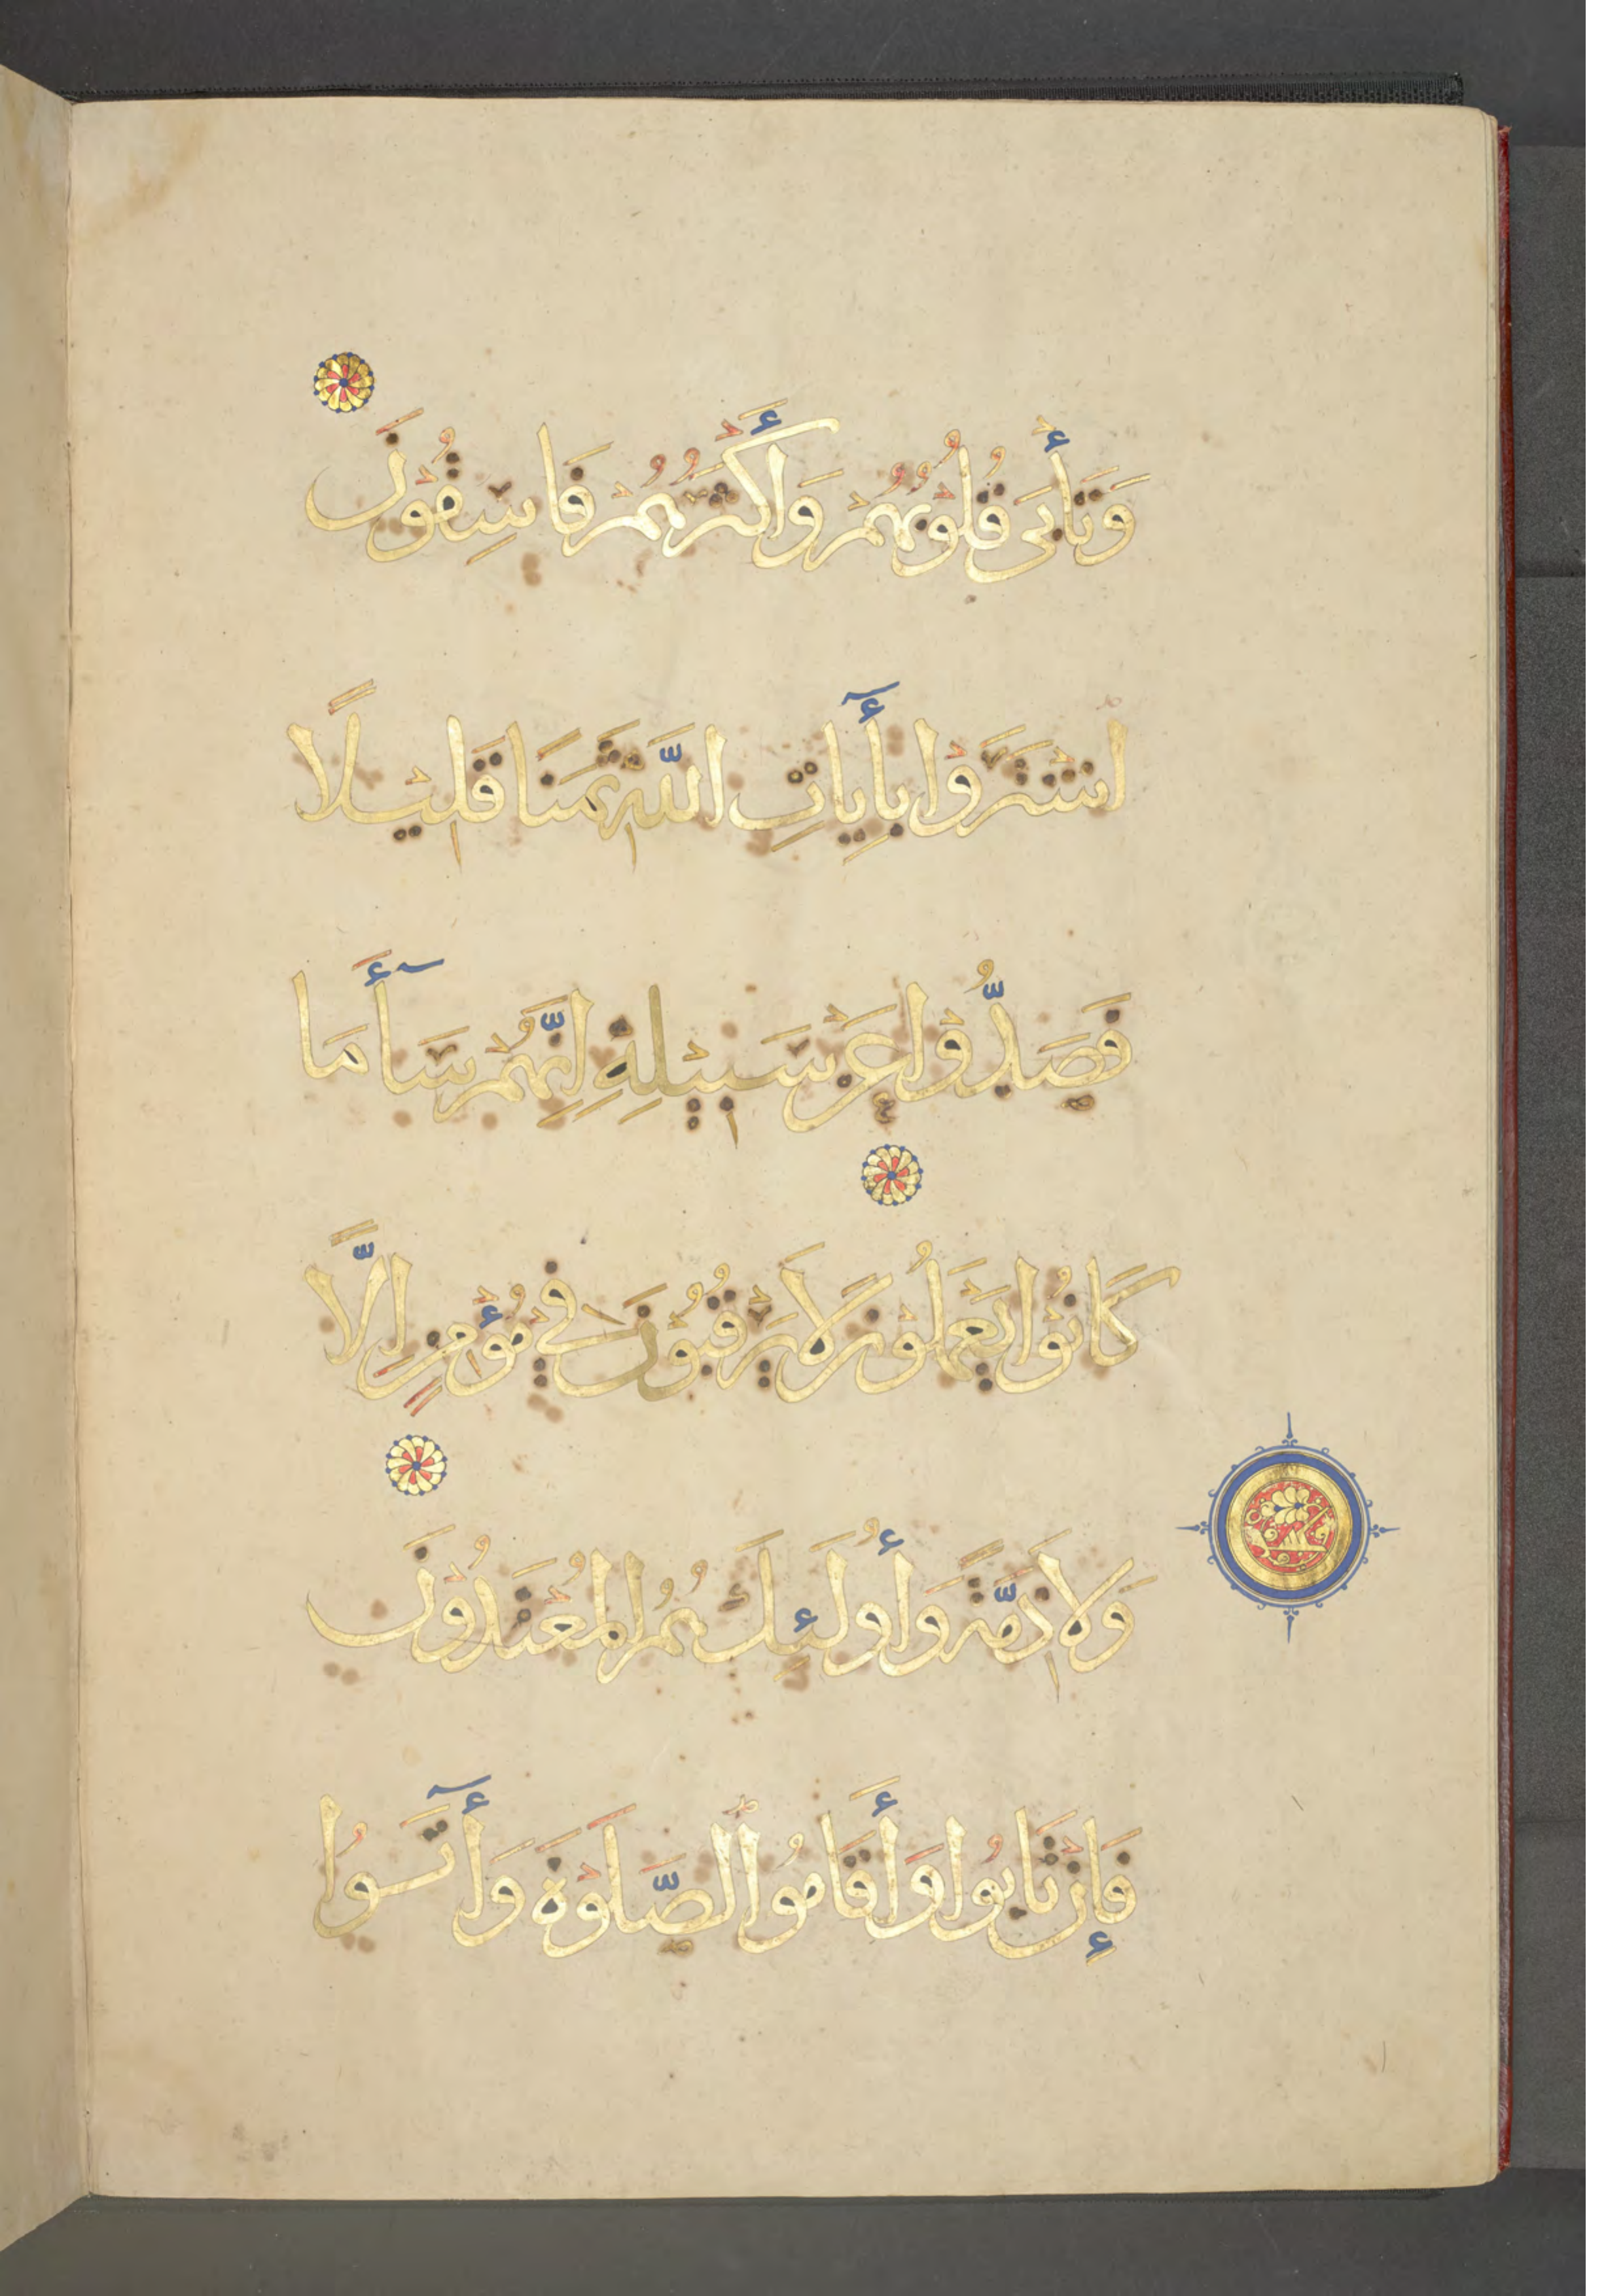 وَتَأْبَى قُلُوبُهُمْ وَأَكْثَرُهُمْ فَاسِقُونَ
اشْتَرَوْا بِأَيَاتِ اللَّهِ ثَمَنًا قَلِيْلًا
فَصَدُّوْا عَنْ سَبِيْلِهِ إِنَّهُمْ سَأَ مَا
كَانُوْا يَعْمَلُوْنَ لَا يَرْقُبُوْنَ فِيْ مُؤْمِنٍ إِلًّا
وَلَا ذِمَّةً وَأُولَئِكَ هُمُ الْمُعْتَدُوْنَ
فَإِنْ تَابُوا وَأَقَامُوا الصَّلَوٰةَ وَأَتَوُا